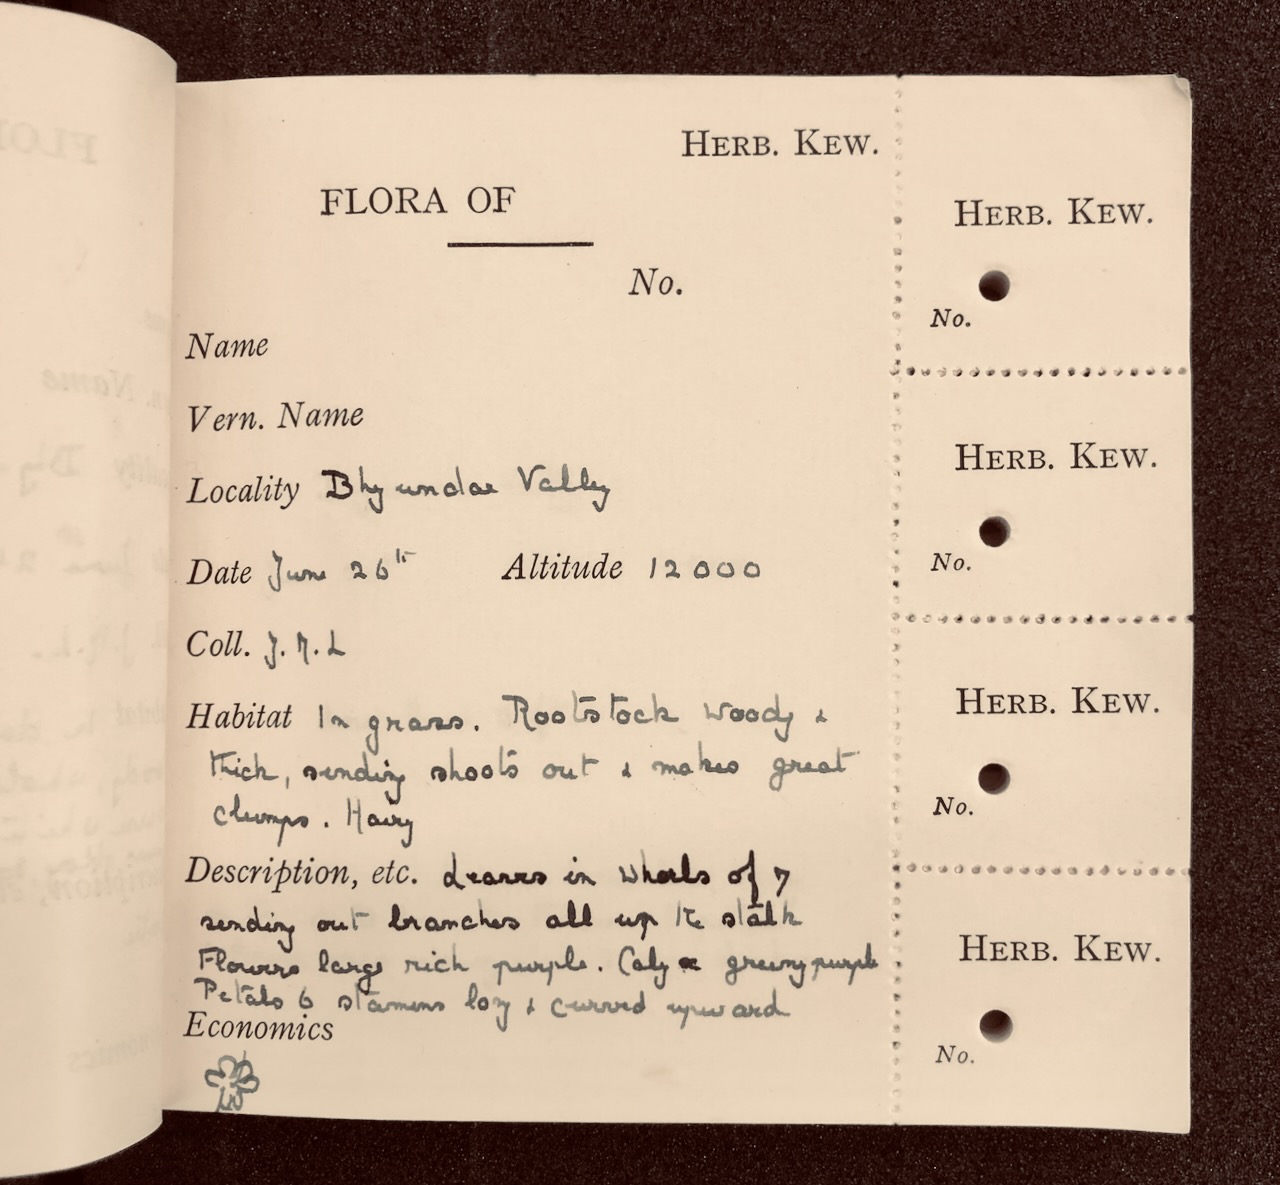 HERB. KEW.
FLORA OF
No.
Name
Vern. Name
Locality Bhyundar Valley
Date June 26th Altitude 12000
Coll. J. M. L
Habitat In grass. Rootstock woody &
thick, sending shoots out & makes great
clumps. Hairy
Description, etc. Leaves in whorls of 7
sending out branches all up the stalk
Flowers large rich purple. Calyx greeny purple
Petals 6 stamens long & curved upward
Economics
HERB. KEW.
No.
HERB. KEW.
No.
HERB. KEW.
No.
HERB. KEW.
No.